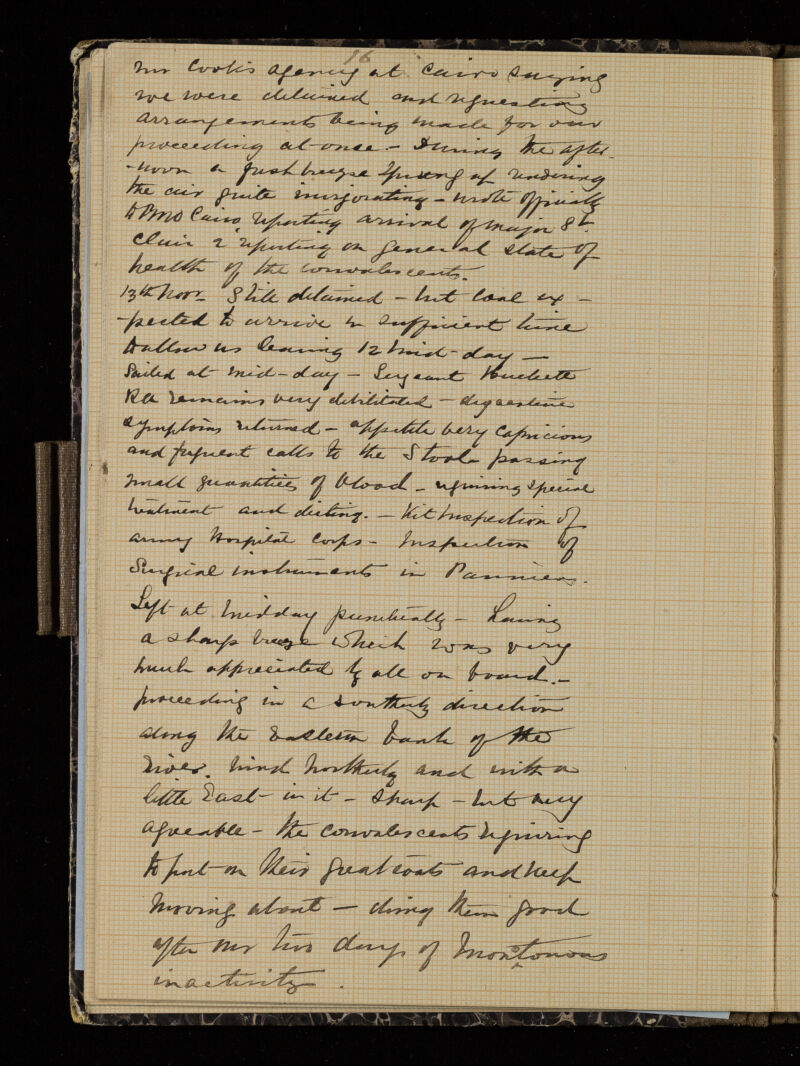 16
Mr Cook's agency at Cairo saying
we were detained and requesting
arrangements being made for our
proceeding at once – During the after-
-noon a fresh breeze sprung up rendering
the air quite invigorating – wrote officially
to PMO Cairo reporting arrival of Major St
Clair & reporting on general state of
health of the convalescents.
13th Novr Still detained – but coal ex-
-pected to arrive in sufficient time
to allow us leaving 12 mid-day –
Sailed at mid-day – Sergeant
RA remains very debilitated –
symptoms returned – appetite very capricious
and frequent calls to the Stool passing
small quantities of blood – requiring special
treatment and dieting. – Kit Inspection of
army Hospital Corps – Inspection of
Surgical instruments in Panniers.
Left at midday punctually – having
a sharp breeze which was very
much appreciated by all on board. –
proceeding in a southerly direction
along the Eastern bank of the
River. Wind Northerly and with a
little East in it – sharp – but very
agreeable – the convalescents requiring
to put on their great coats and keep
moving about – doing them good
after our two days of monotonous
inactivity.